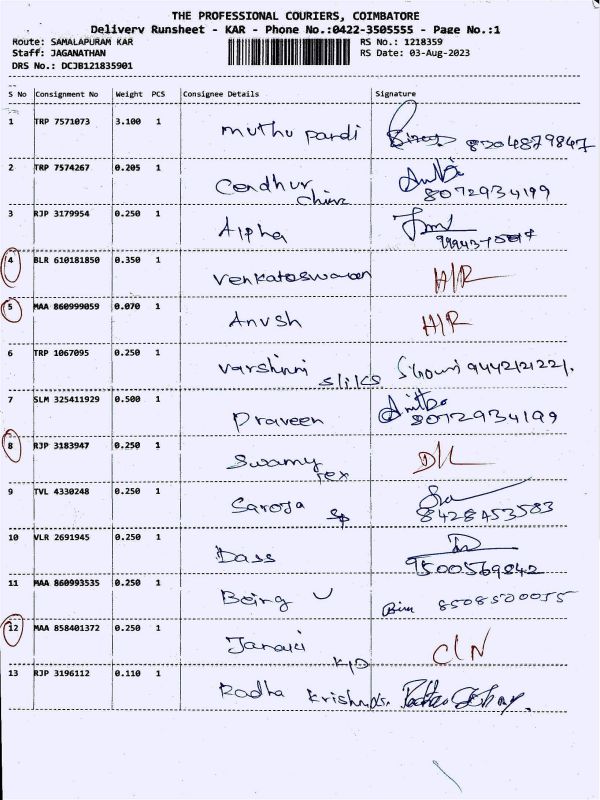 THE PROFESSIONAL COURIERS, COIMBATORE
Delivery Runsheet - KAR - Phone No.:0422-3505555 - Page No.:1
Route: SAMALAPURAM KAR RS No.: 1218359
Staff: JAGANATHAN RS Date: 03-Aug-2023
DRS No.: DCJB121835901
S No Consignment No Weight PCS Consignee Details Signature
1 TRP 7571073 3.100 1 muthu pandi
2 TRP 7574267 0.205 1 8072934199
3 RJP 3179954 0.250 1 Alpha
4 BLR 610181850 0.350 1 Venkateswaran H/R
5 MAA 860999059 0.070 1 Anush H/R
6 TRP 1067095 0.250 1 Varshini silks
7 SLM 325411929 0.500 1 Praveen 8072934199
8 RJP 3183947 0.250 1 Swamy tex D/L
9 TVL 4330248 0.250 1 Saroja Sp 8428453583
10 VLR 2691945 0.250 1 Dass 9500569842
11 MAA 860993535 0.250 1 Being
12 MAA 858401372 0.250 1 Janaki C/N
13 RJP 3196112 0.110 1 Radha